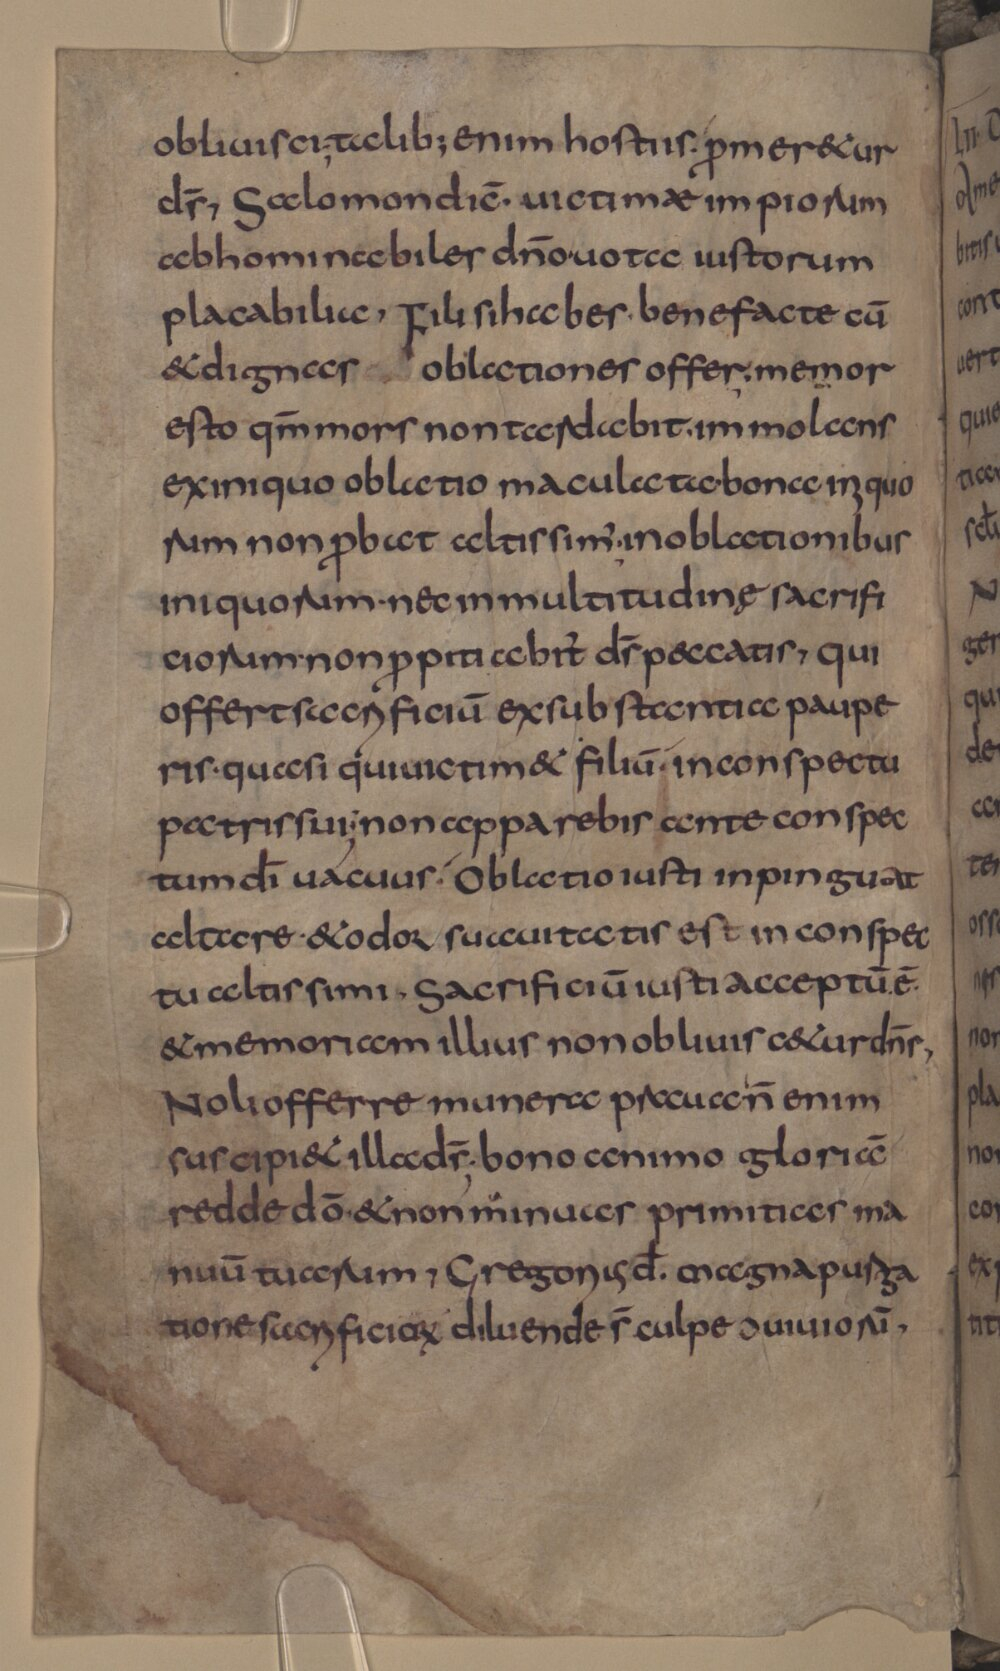 obliuisci; talib; enim hostiis. ꝓmer&ur
dr̄, Salomon dic̄. uictimæ impiorum
abhominabiles dn̄o. uota iustorum
placabilia, Fili si habes. benefac te cū
& dignas oblationes offer; memor
esto qm̄ mors non tardabit. immolans
ex iniquo oblatio maculata. bona iniquo
rum non ꝓbat altissim'. in oblationibus
iniquorum. nec in multitudinę sacrifi
ciorum. non ꝓpitiabit̄ dr̄ peccatis, qui
offert sacrificiū ex substantia paupe
ris. quasi qui uictim& filiū. in conspectu
patris sui; non apparebis ante conspec
tum dī uacuus. Oblatio iusti inpinguat
altare. & odor suauitatis est in conspec
tu altissimi. Sacrificiū iusti acceptū ē.
& memoriam illius non obliuisc&ur dn̄s,
Noli offerre munera praua n̄ enim
suscipi& illa dr̄. bono animo gloriā
redde dō. & non minuas primitias ma
nuū tuarum, Gregorius d̄. magna purga
tione sacrificior diluende s̄ culpe ɔuiuiorū,